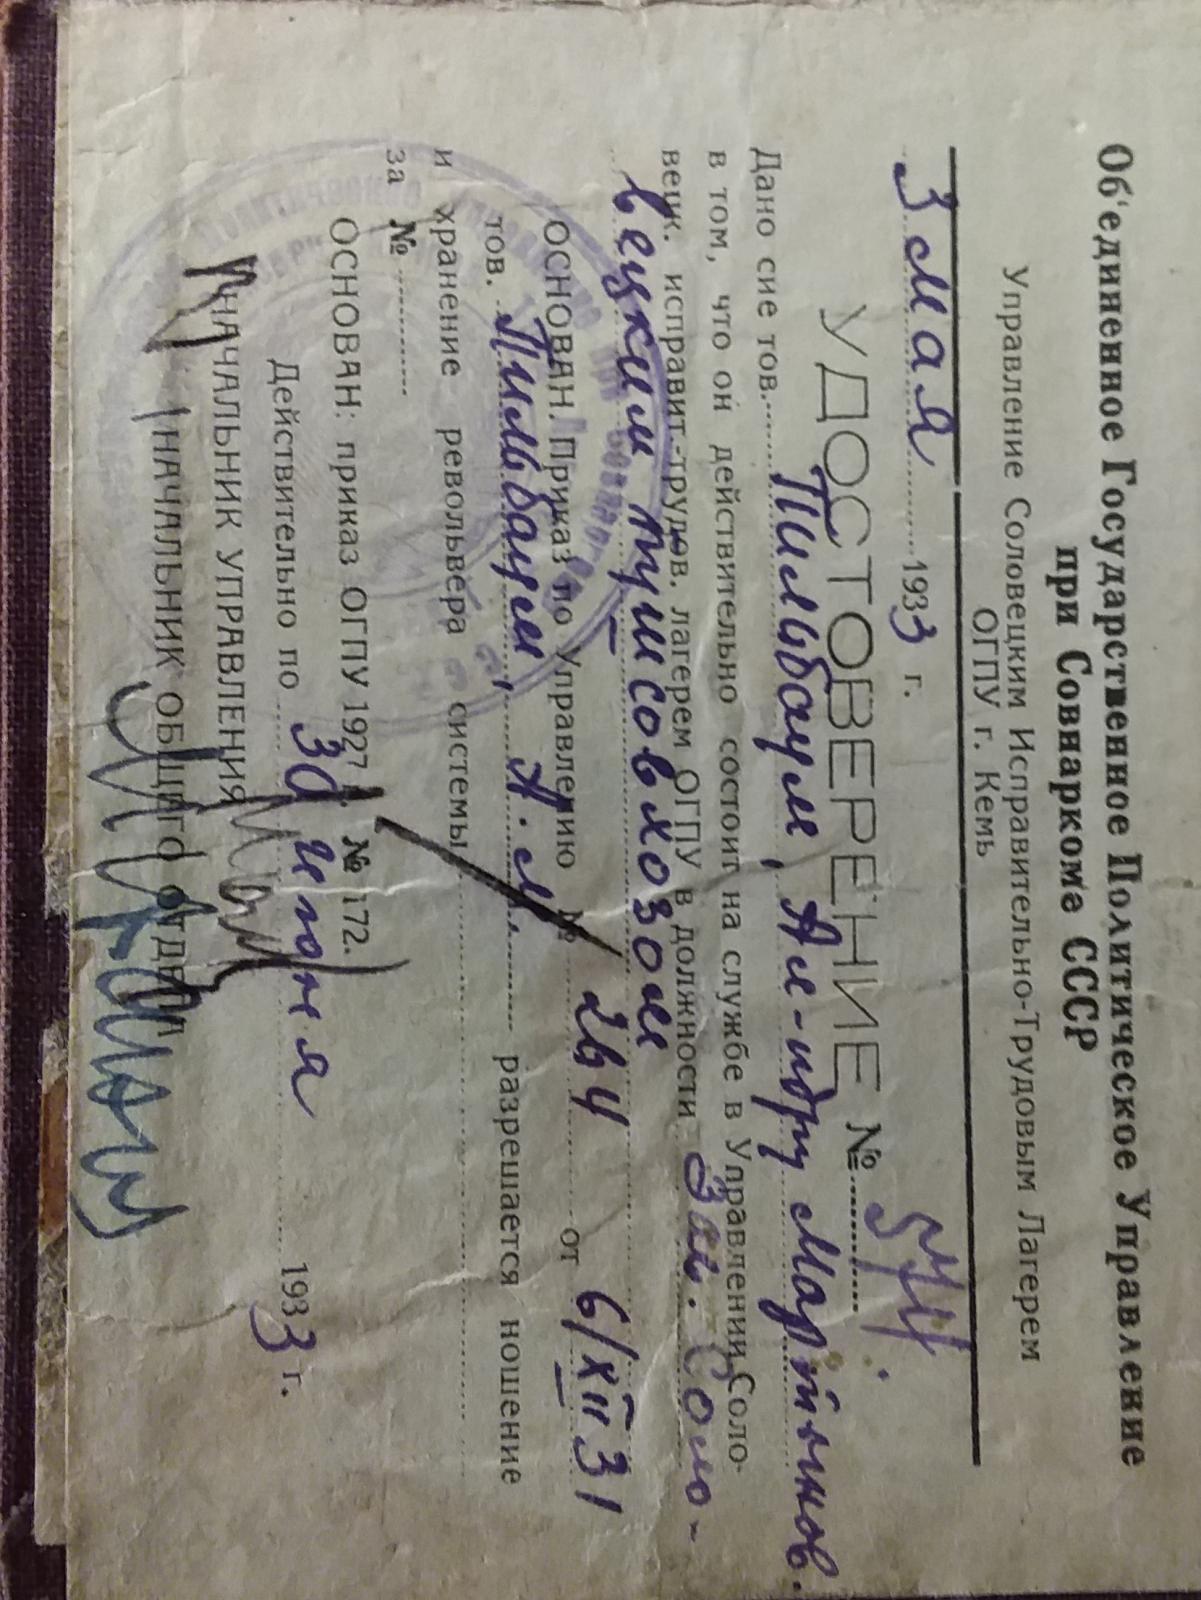 Об'единенное Государственное Политическое Управление
при Совнаркоме СССР
Управление Соловецким Исправительно-Трудовым Лагерем
ОГПУ г. Кемь
3 мая 1933 г.
УДОСТОВЕРЕНИЕ №
Дано сие тов. Пильбаум, Ал-дру Мартынов.
в том, что он действительно состоит на службе в Управлении Соло-
вецк. исправит-трудов. лагерем ОГПУ в должности Зам. Соло-
вецким пушсовхозом
ОСНОВАН. Приказ по Управлению № 264 от 6/XII 31
тов. Пильбаум, А. М. разрешается ношение
и хранение револьвера системы
за №
ОСНОВАН: приказ ОГПУ 1927 г. № 172.
Действительно по 30 июня 1933 г.
НАЧАЛЬНИК УПРАВЛЕНИЯ
НАЧАЛЬНИК ОБЩЕГО ОТДЕЛА